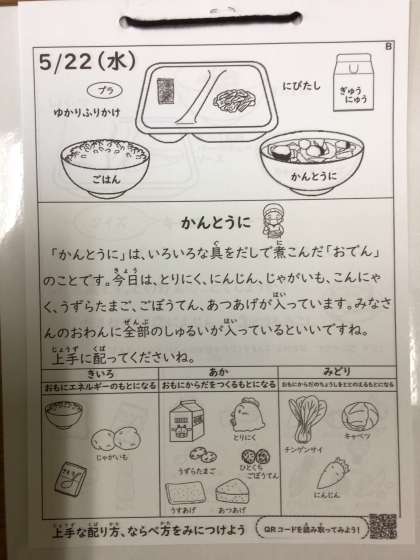 B
5/22(水)
プラ
ゆかりふりかけ
にびたし
ぎゅうにゅう
ごはん
かんとうに
かんとうに
「かんとうに」は、いろいろな具をだしで煮こんだ「おでん」
のことです。今日は、とりにく、にんじん、じゃがいも、こんにゃ
く、うずらたまご、ごぼうてん、あつあげが入っています。みなさ
んのおわんに全部のしゅるいが入っているといいですね。
上手に配ってくださいね。
きいろ あか みどり
おもにエネルギーのもとになる おもにからだをつくるもとになる おもにからだのちょうしをととのえるもとになる
じゃがいも
とりにく
うずらたまご
ひとくちごぼうてん
うすあげ
あつあげ
チンゲンサイ
キャベツ
にんじん
上手な配り方、ならべ方をみにつけよう
QRコードを読み取ってみよう!